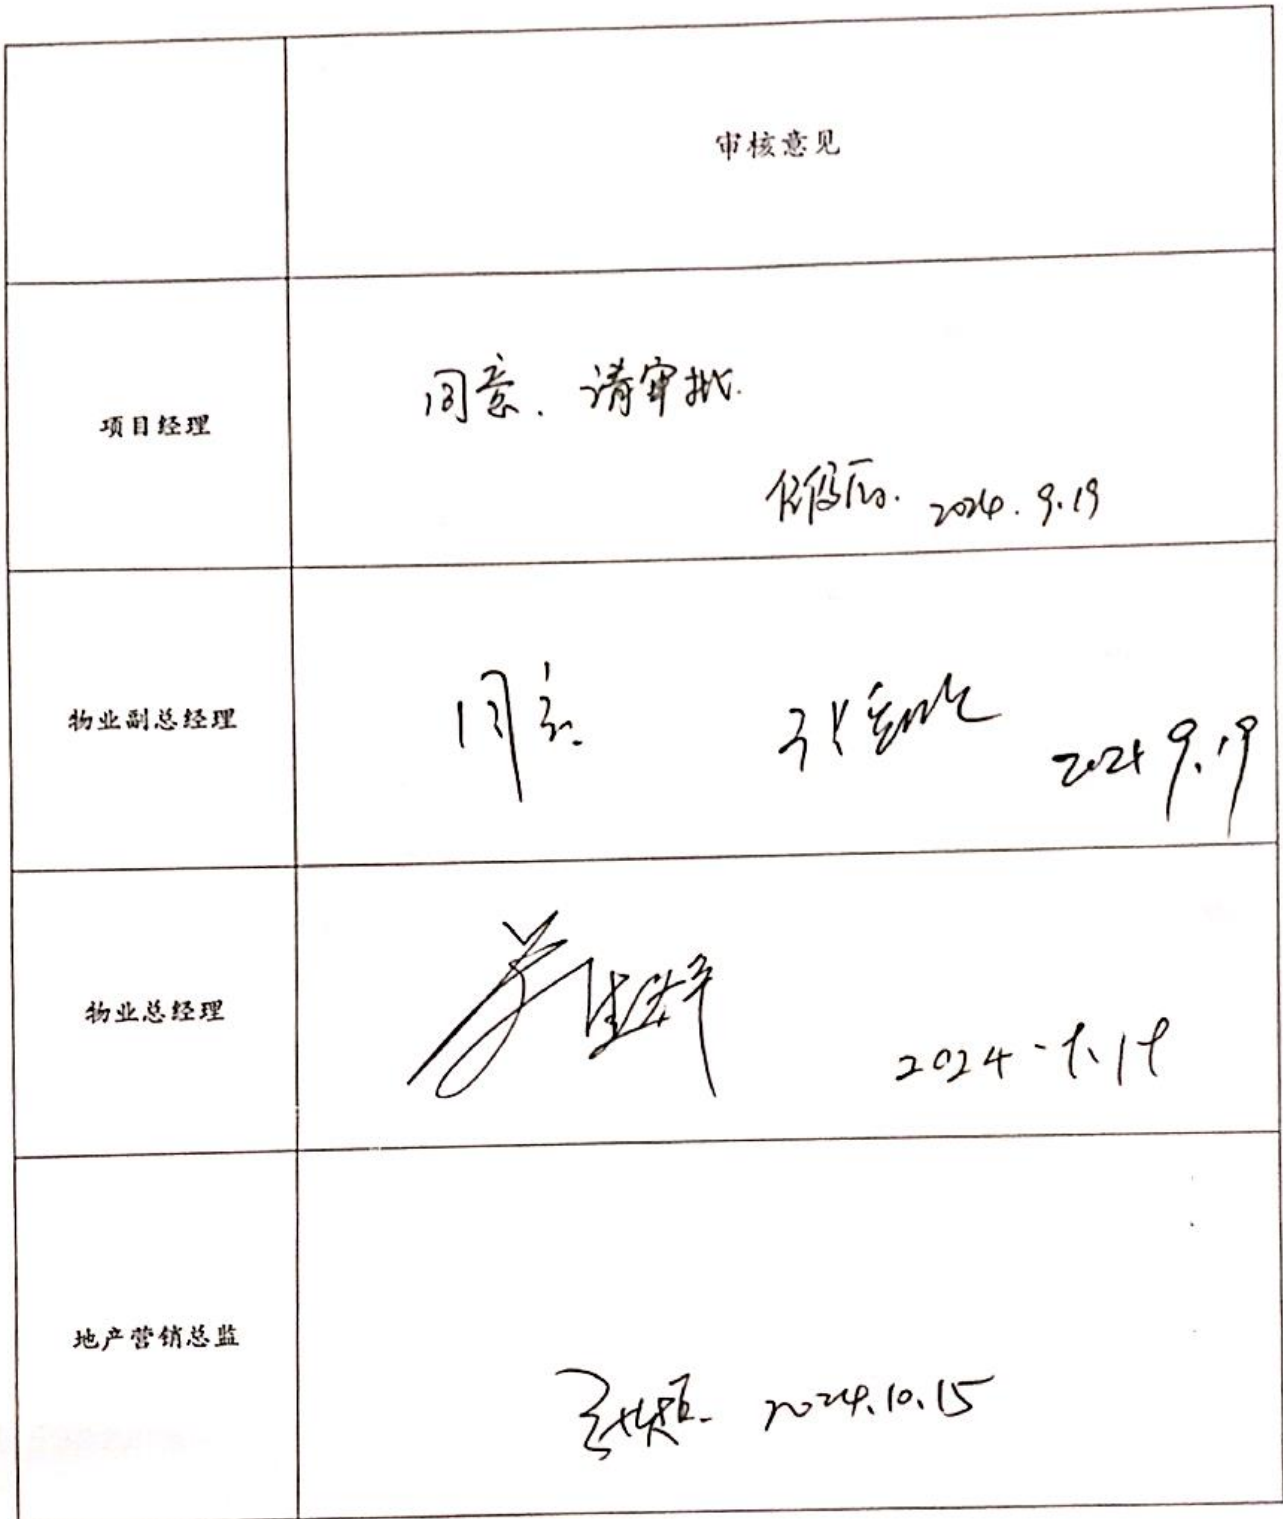 审核意见
项目经理
同意. 请审批.
2024.9.19
物业副总经理
同意.
2024 9.19
物业总经理
2024-9.19
地产营销总监
2024.10.15